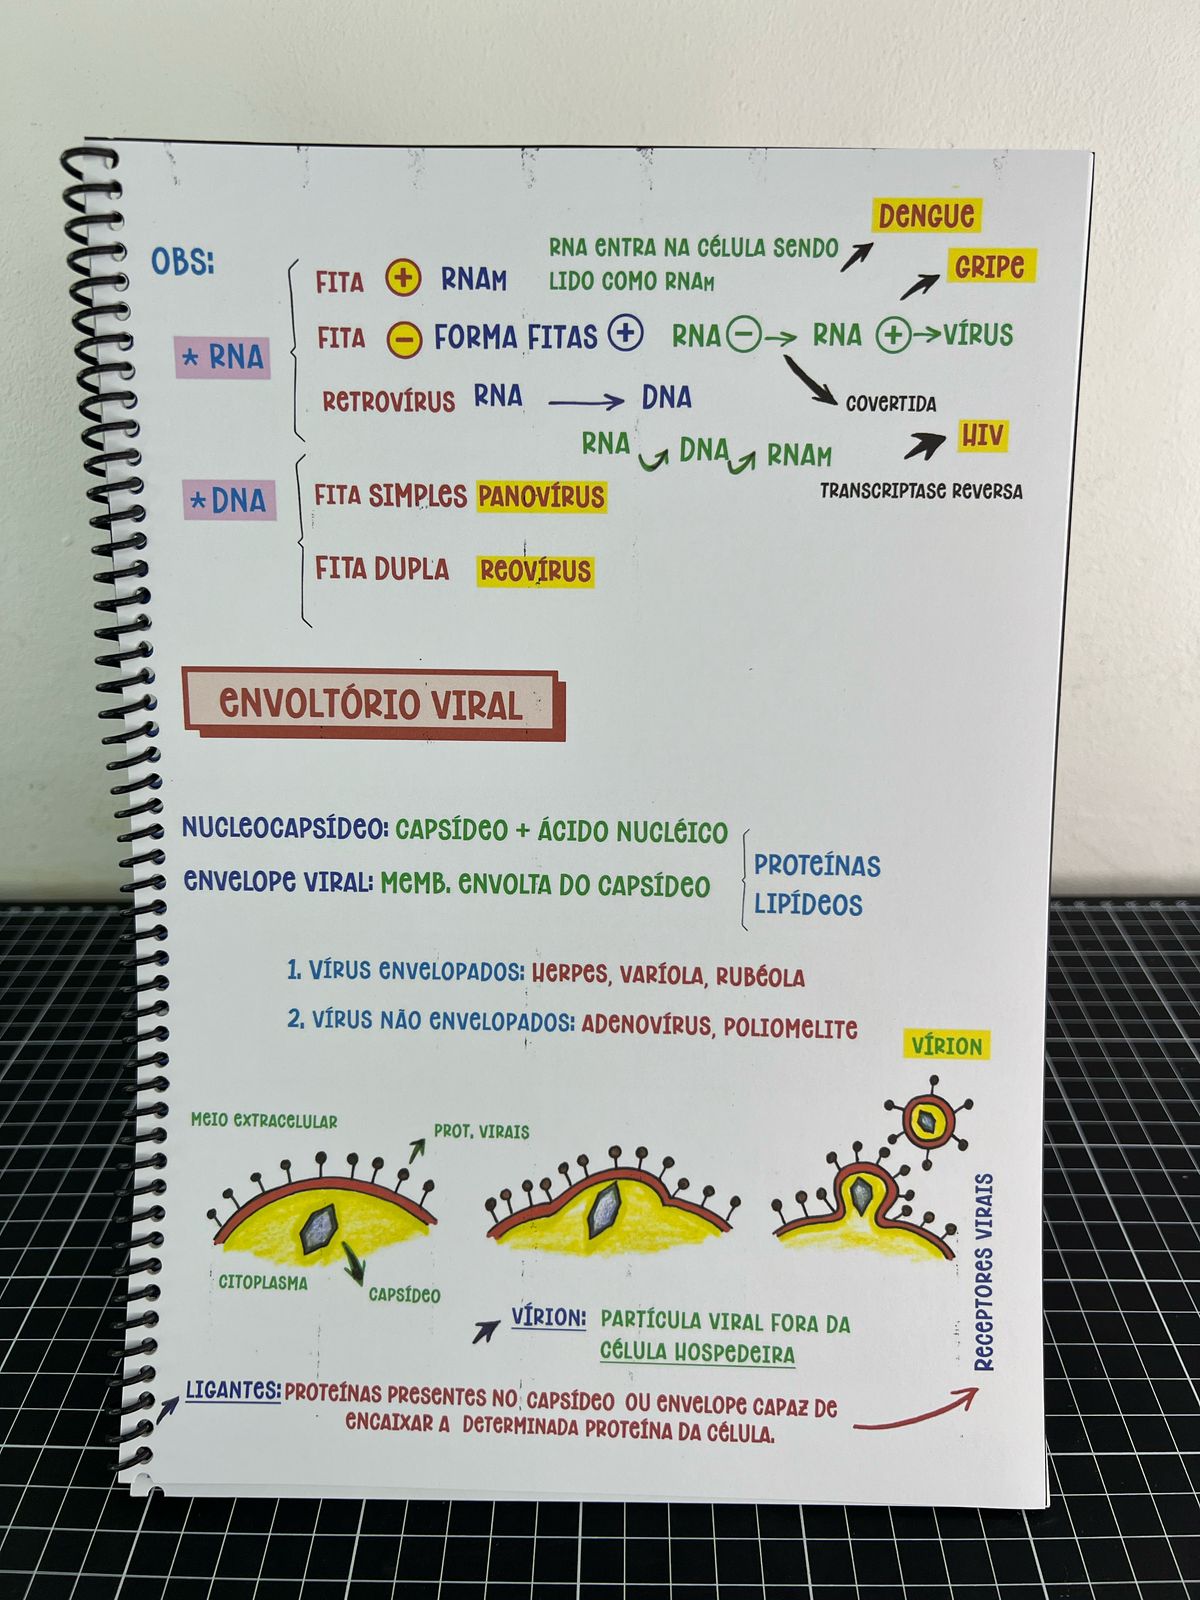 OBS:
* RNA
FITA + RNAM
RNA ENTRA NA CÉLULA SENDO
LIDO COMO RNAM
DENGUE
FITA - FORMA FITAS + RNA - → RNA + → VÍRUS
GRIPE
COVERTIDA
RETROVÍRUS RNA → DNA
RNA DNA RNAM
HIV
TRANSCRIPTASE REVERSA
* DNA
FITA SIMPLES PANOVÍRUS
FITA DUPLA REOVÍRUS
ENVOLTÓRIO VIRAL
NUCLEOCAPSÍDEO: CAPSÍDEO + ÁCIDO NUCLÉICO
ENVELOPE VIRAL: MEMB. ENVOLTA DO CAPSÍDEO
PROTEÍNAS
LIPÍDEOS
1. VÍRUS ENVELOPADOS: HERPES, VARÍOLA, RUBÉOLA
2. VÍRUS NÃO ENVELOPADOS: ADENOVÍRUS, POLIOMELITE
VÍRION
MEIO EXTRACELULAR
PROT. VIRAIS
CITOPLASMA
CAPSÍDEO
VÍRION: PARTÍCULA VIRAL FORA DA
CÉLULA HOSPEDEIRA
RECEPTORES VIRAIS
LIGANTES: PROTEÍNAS PRESENTES NO CAPSÍDEO OU ENVELOPE CAPAZ DE
ENCAIXAR A DETERMINADA PROTEÍNA DA CÉLULA.